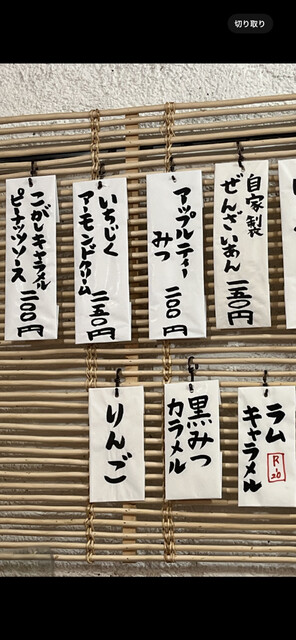 切り取り
自家製
ぜんざいあん
一五〇円
アップルティー
みつ
一〇〇円
いちじく
アーモンドクリーム
一五〇円
こがしキャラメル
ピーナッツソース
一〇〇円
ラム
キャラメル
R-20
黒みつ
カラメル
りんご